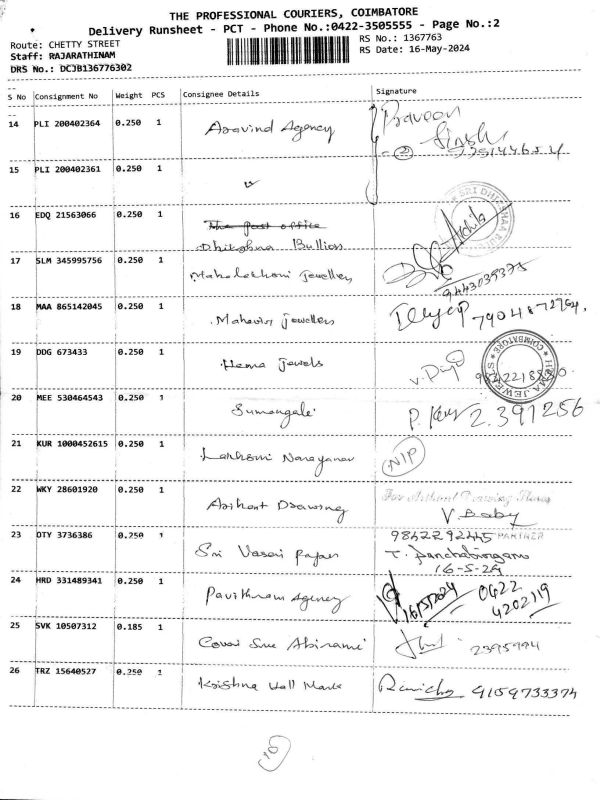 THE PROFESSIONAL COURIERS, COIMBATORE
Delivery Runsheet - PCT - Phone No.:0422-3505555 - Page No.:2
Route: CHETTY STREET RS No.: 1367763
Staff: RAJARATHINAM RS Date: 16-May-2024
DRS No.: DCJB136776302
S No Consignment No Weight PCS Consignee Details Signature
14 PLI 200402364 0.250 1 Aravind Agency Praveen
Singh
15 PLI 200402361 0.250 1
16 EDQ 21563066 0.250 1 The post office
Dhikshna Bullion
17 SLM 345995756 0.250 1 Mahalakshmi Jewellers
9443039375
18 MAA 865142045 0.250 1 Mahavir Jewellers
19 DDG 673433 0.250 1 Hema Jewels
HEMA JEWELS COIMBATORE
20 MEE 530464543 0.250 1 Sumangale P. Ken 2.391256
21 KUR 1000452615 0.250 1 Lakshmi Narayanan NIP
22 WKY 28601920 0.250 1 Arihant Drawing
V. Baby
PARTNER
23 OTY 3736386 0.250 1 Sri Vasavi 9842292445
16-5-24
24 HRD 331489341 0.250 1 Pavithram Agency 16/5/2024 0422
4202119
25 SVK 10507312 0.185 1 Covai Sree Abirami 2395994
26 TRZ 15640527 0.250 1 Krishna Hall Mark 9159733374
10